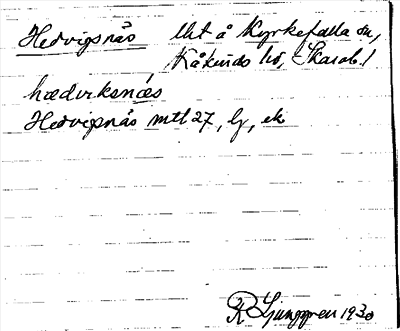 Hedvigsnäs Utt å Kyrkefalla sn,
Kåkinds hd, Skarab. l
hædviksnæs
Hedvigsnäs mtl 27, lj, ek
R Ljunggren 1930